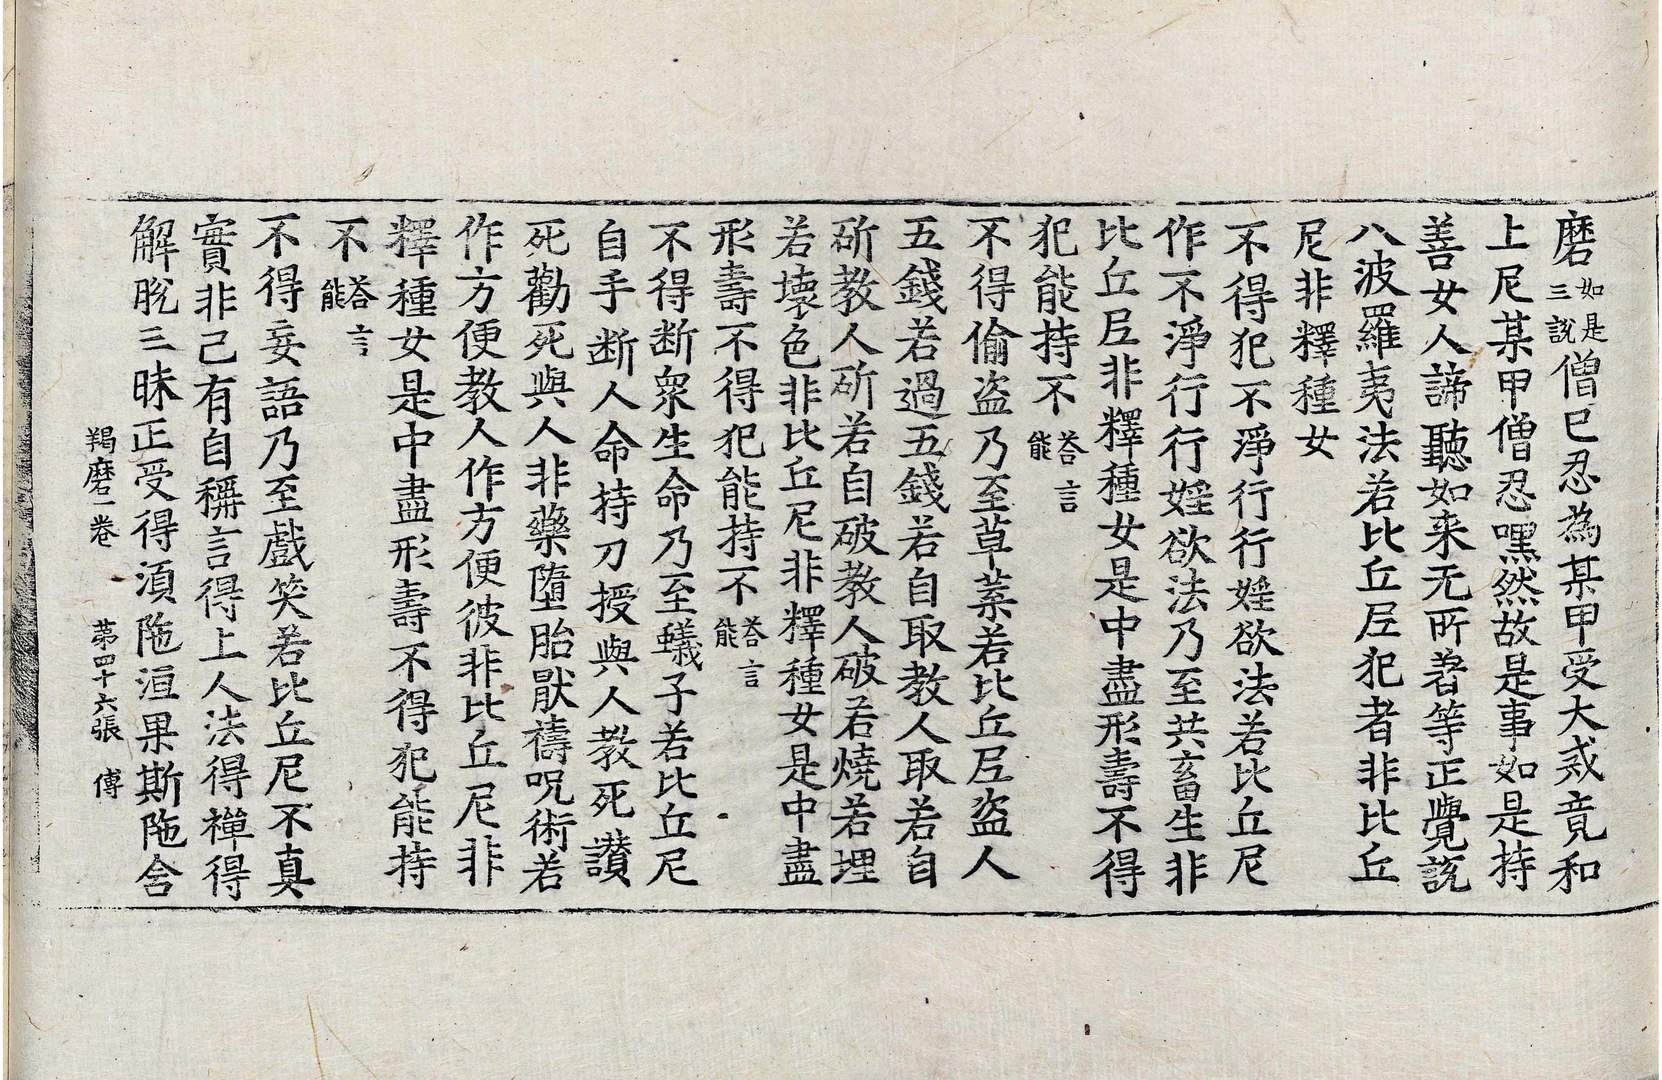 磨如是三說僧已忍為某甲受大戒竟和
上尼某甲僧忍嘿然故是事如是持
善女人諦聽如来无所著等正覺說
八波羅夷法若比丘尼犯者非比丘
尼非釋種女
不得犯不淨行行婬欲法若比丘尼
作不淨行行婬欲法乃至共畜生非
比丘尼非釋種女是中盡形壽不得
犯能持不答言能
不得偷盗乃至草葉若比丘尼盗人
五錢若過五錢若自取教人取若自
斫教人斫若自破教人破若燒若埋
若壞色非比丘尼非釋種女是中盡
形壽不得犯能持不答言能
不得断衆生命乃至蟻子若比丘尼
自手断人命持刀授與人教死讃
死勸死與人非藥墮胎厭禱呪術若
作方便教人作方便彼非比丘尼非
釋種女是中盡形壽不得犯能持
不答言能
不得妄語乃至戲笑若比丘尼不真
實非己有自稱言得上人法得禪得
解脫三昧正受得湏陁洹果斯陁含
羯磨一卷 苐四十六張 傅